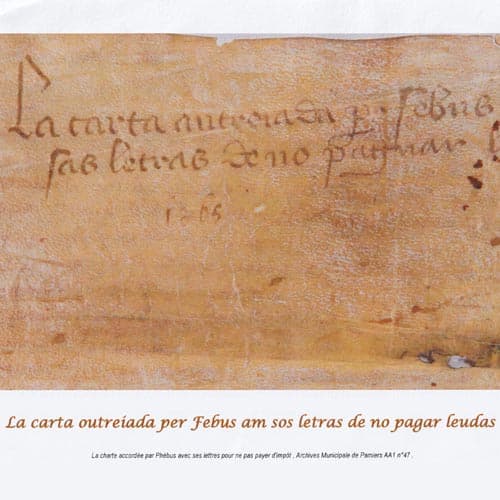 La carta autreiada per Febus
sas letras de no paguar l
1265
La carta outreíada per Febus am sos letras de no pagar leudas
La charte accordée par Phébus avec ses lettres pour ne pas payer d'impôt , Archives Municipale de Pamiers AA1 n°47 .